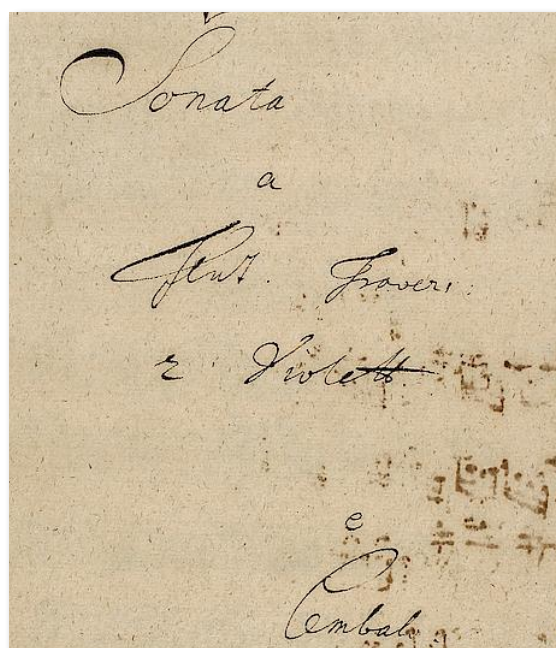 Sonata
a
Flut. Travers.
2 Violett
e
Cembal